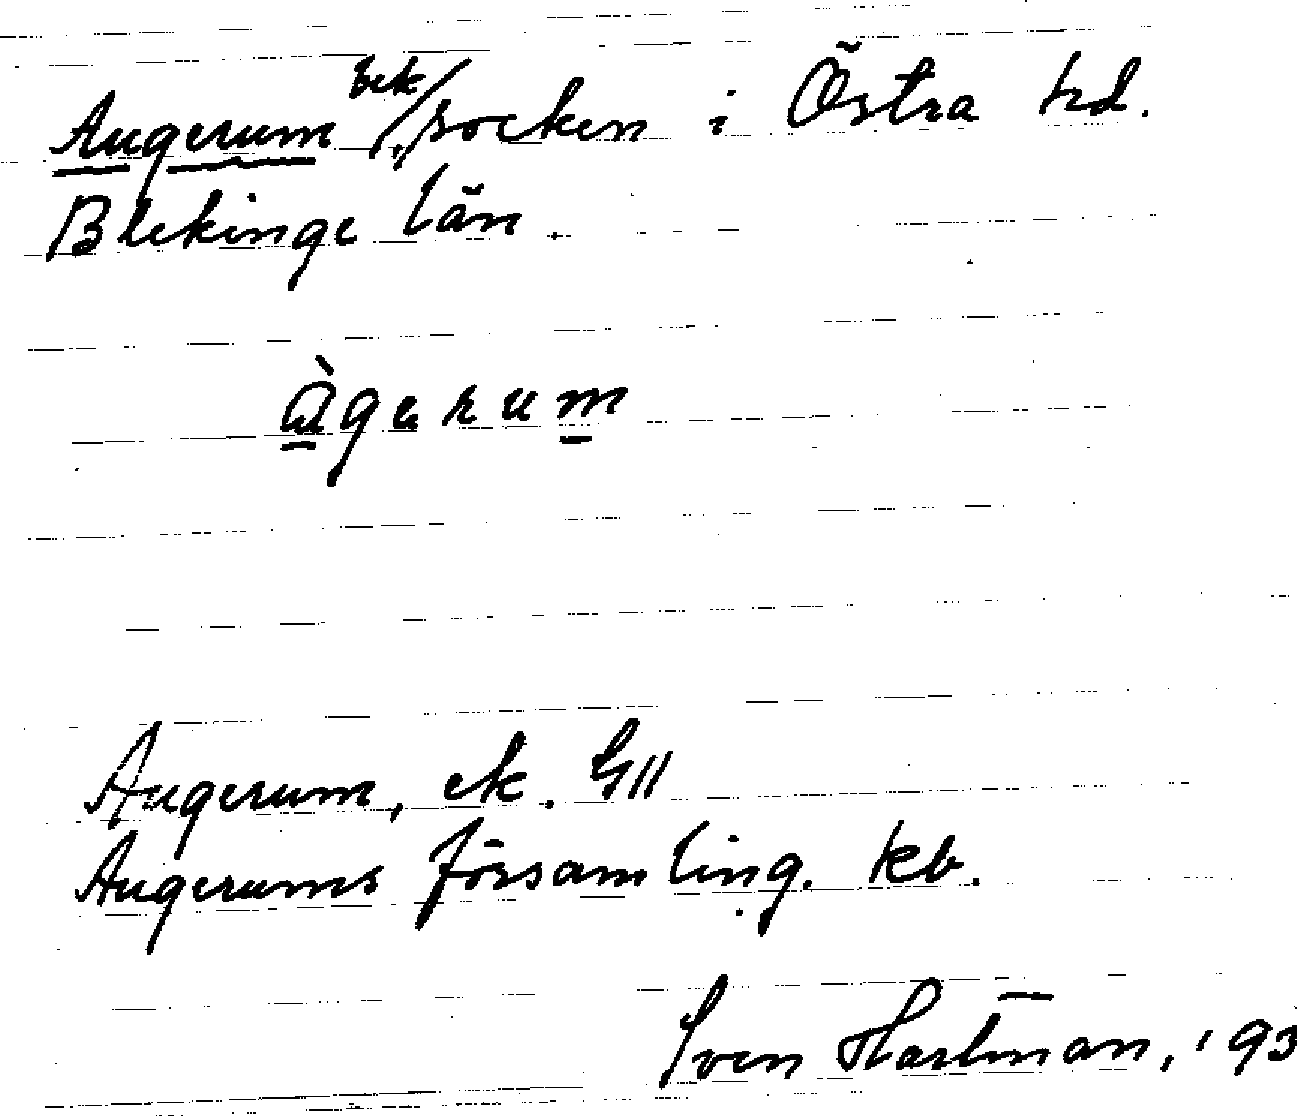 Augerum bek/socken i Östra hd.
Blekinge län.
àgerum
Augerum, ek. G11
Augerums församling. kb.
Sven Hartman, '93